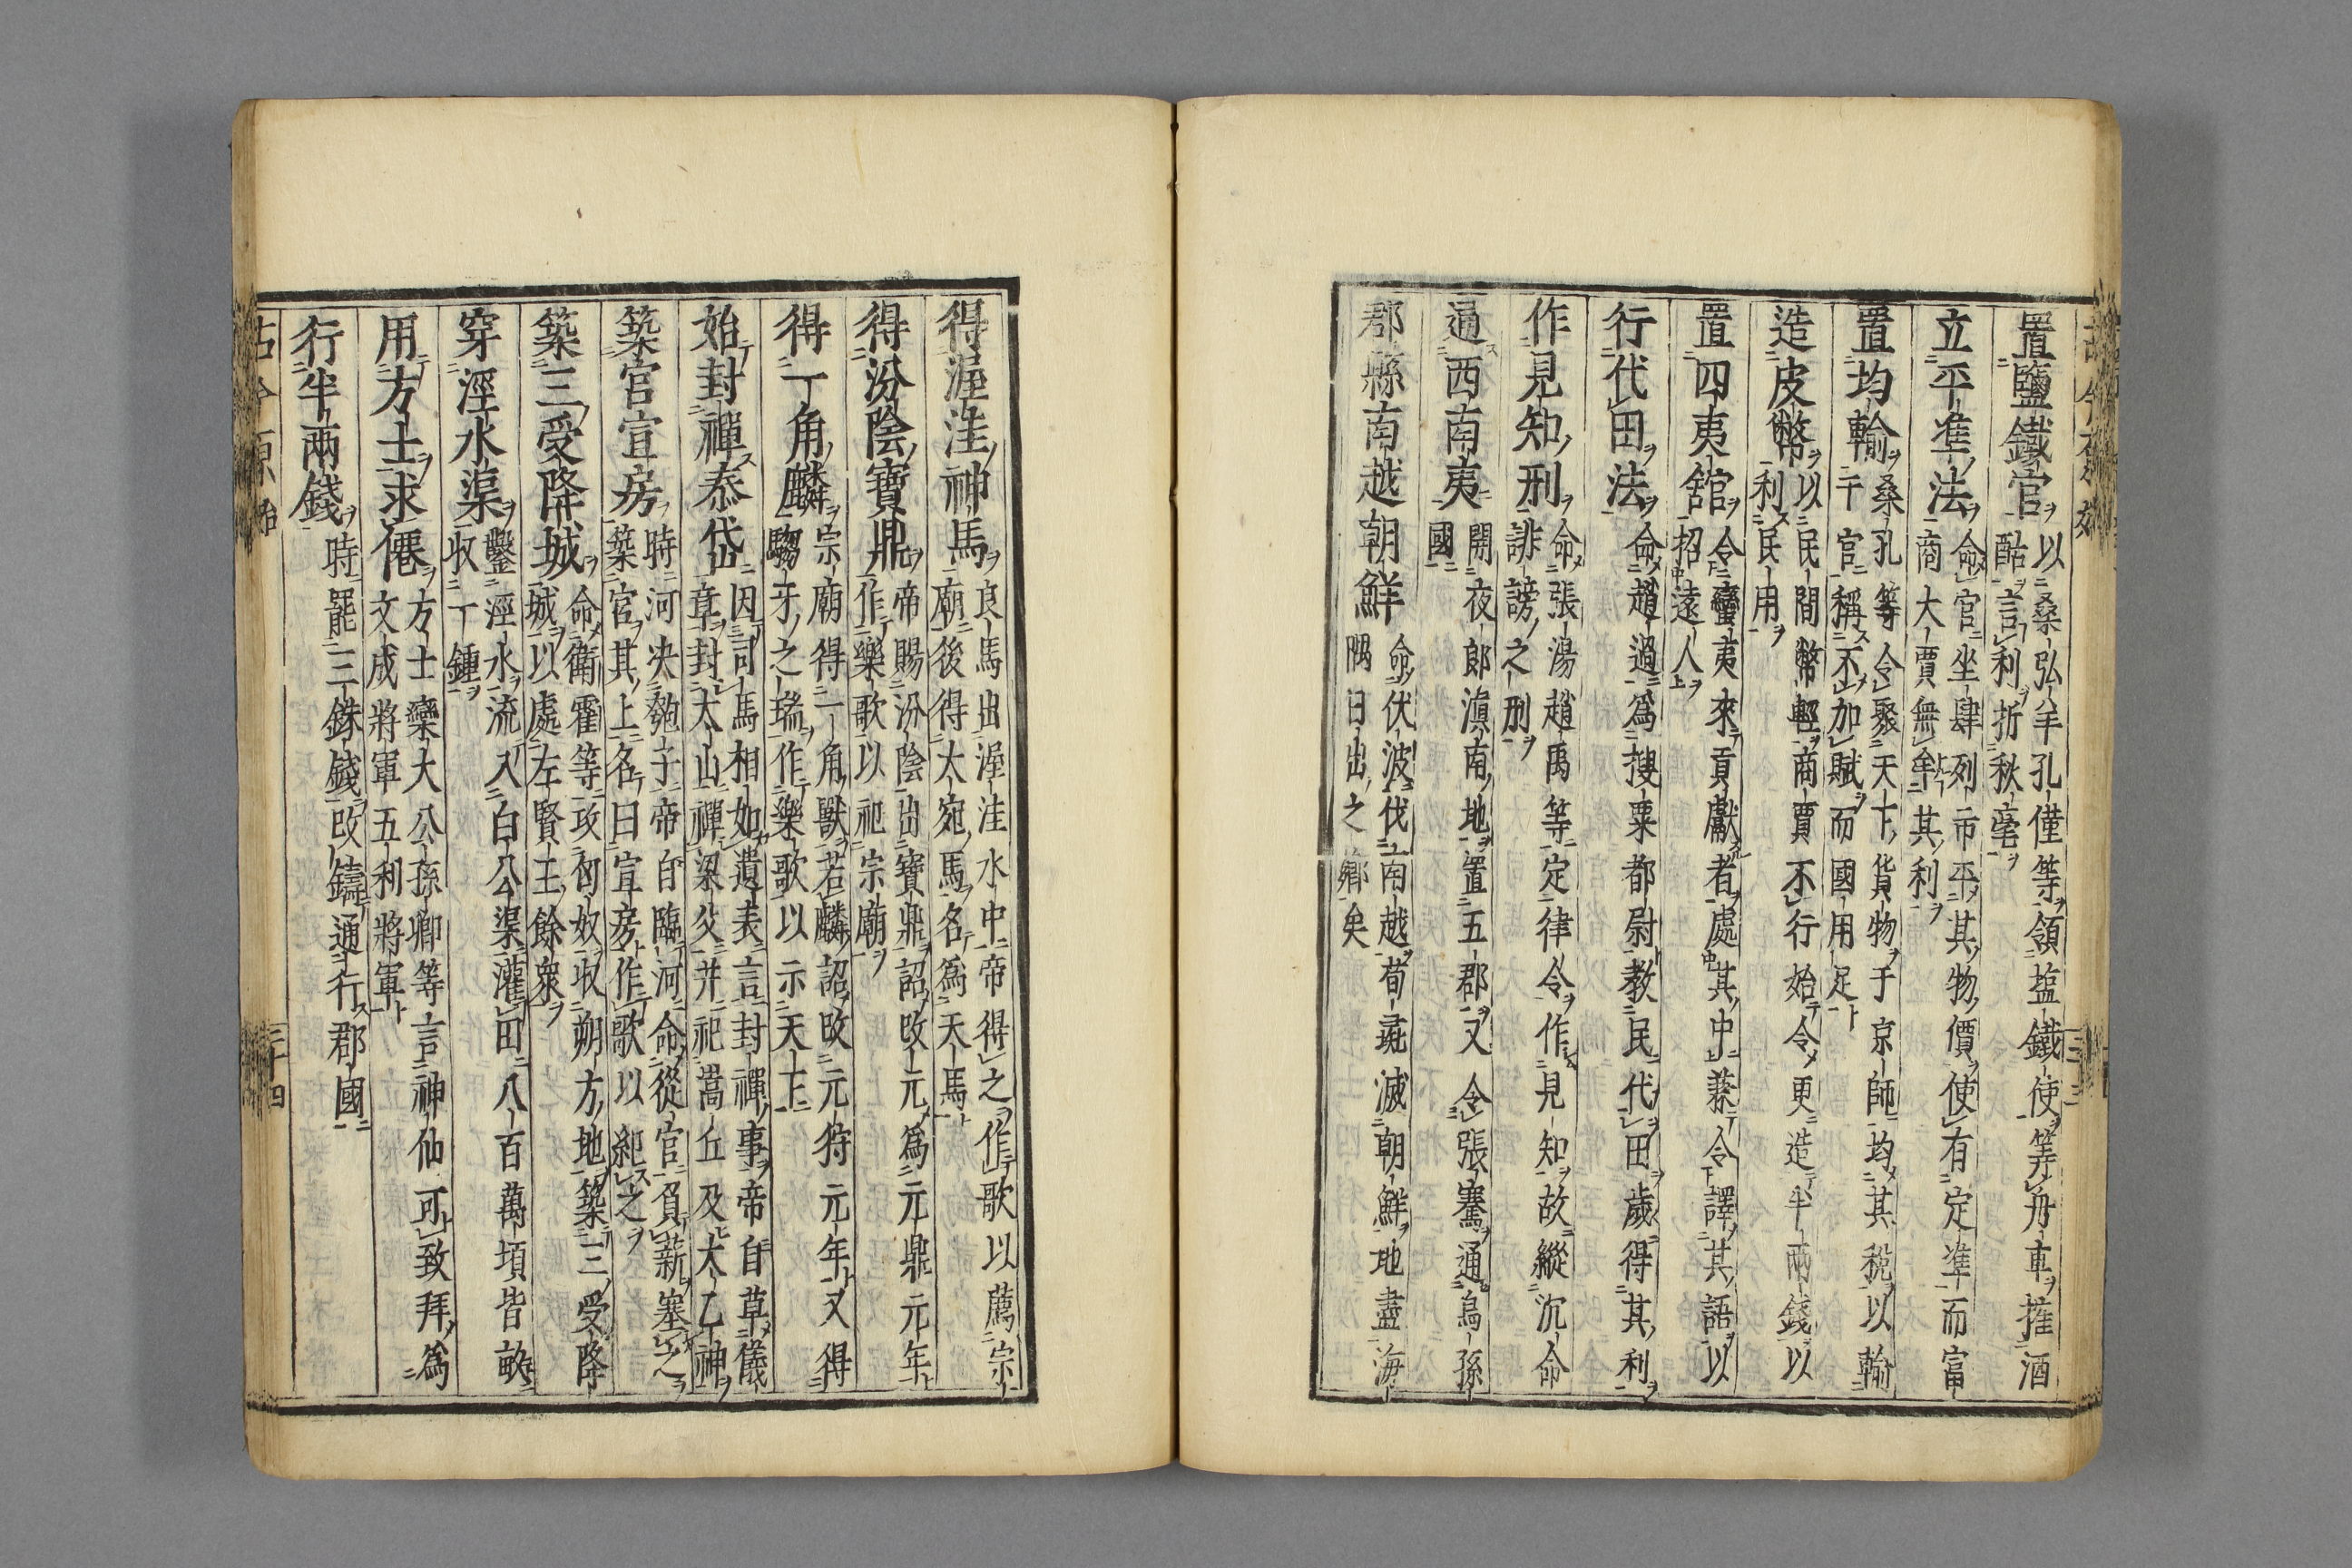 置鹽鐵官 以桑弘羊孔僅等領塩鐵使等舟車搉酒
酤言利折秋毫
立平準法 命官坐肆列市平其物價使有定準而富
商大賈無牟其利
置均輸 桑孔等令聚天下貨物于京師均其稅以輸
于官稱不加賦而國用足
造皮幣 以民間幣輕商賈不行始令更造半兩錢以
利民用
置四夷舘 令蠻夷來貢獻者處其中蔡令譯其語以
招遠人
行代田法 命趙過為搜粟都尉教民代田歲得其利
作見知刑 命張湯趙禹等定律令作見知故縱沉命
誹謗之刑
通西南夷 開夜郎滇南地置五郡又令張騫通烏孫
國
郡縣南越朝鮮 命伏波伐南越荀彘滅朝鮮地盡海
隅日出之鄉矣
得渥洼神馬 良馬出渥洼水中帝得之作歌以薦宗
廟後得大宛馬名為天馬
得汾陰寶鼎 帝賜汾陰出寶鼎詔改元為元鼎元年
作樂歌以祀宗廟
得一角麟 宗廟得一角獸若麟詔改元狩元年又得
騶牙之瑞作樂歌以示天下
始封禪泰岱 因司馬相如遺表言封禪事帝自草儀
章封太山禪梁父并祀嵩丘及大乙神
築官宣房 時河决匏子帝自臨河命從官負薪塞之
築官其上名曰宣房作歌以紀之
築三受降城 命衛霍等攻匈奴收朔方地築三受降
城以處左賢王餘衆
穿涇水渠 鑿涇水流入白公渠灌田八百萬頃皆畝
收一鍾
用方士求僊 方士欒大公孫卿等言神仙可致拜為
文成將軍五利將軍
行半兩錢 時罷三銖錢改鑄通行郡國
古今原始
三十四